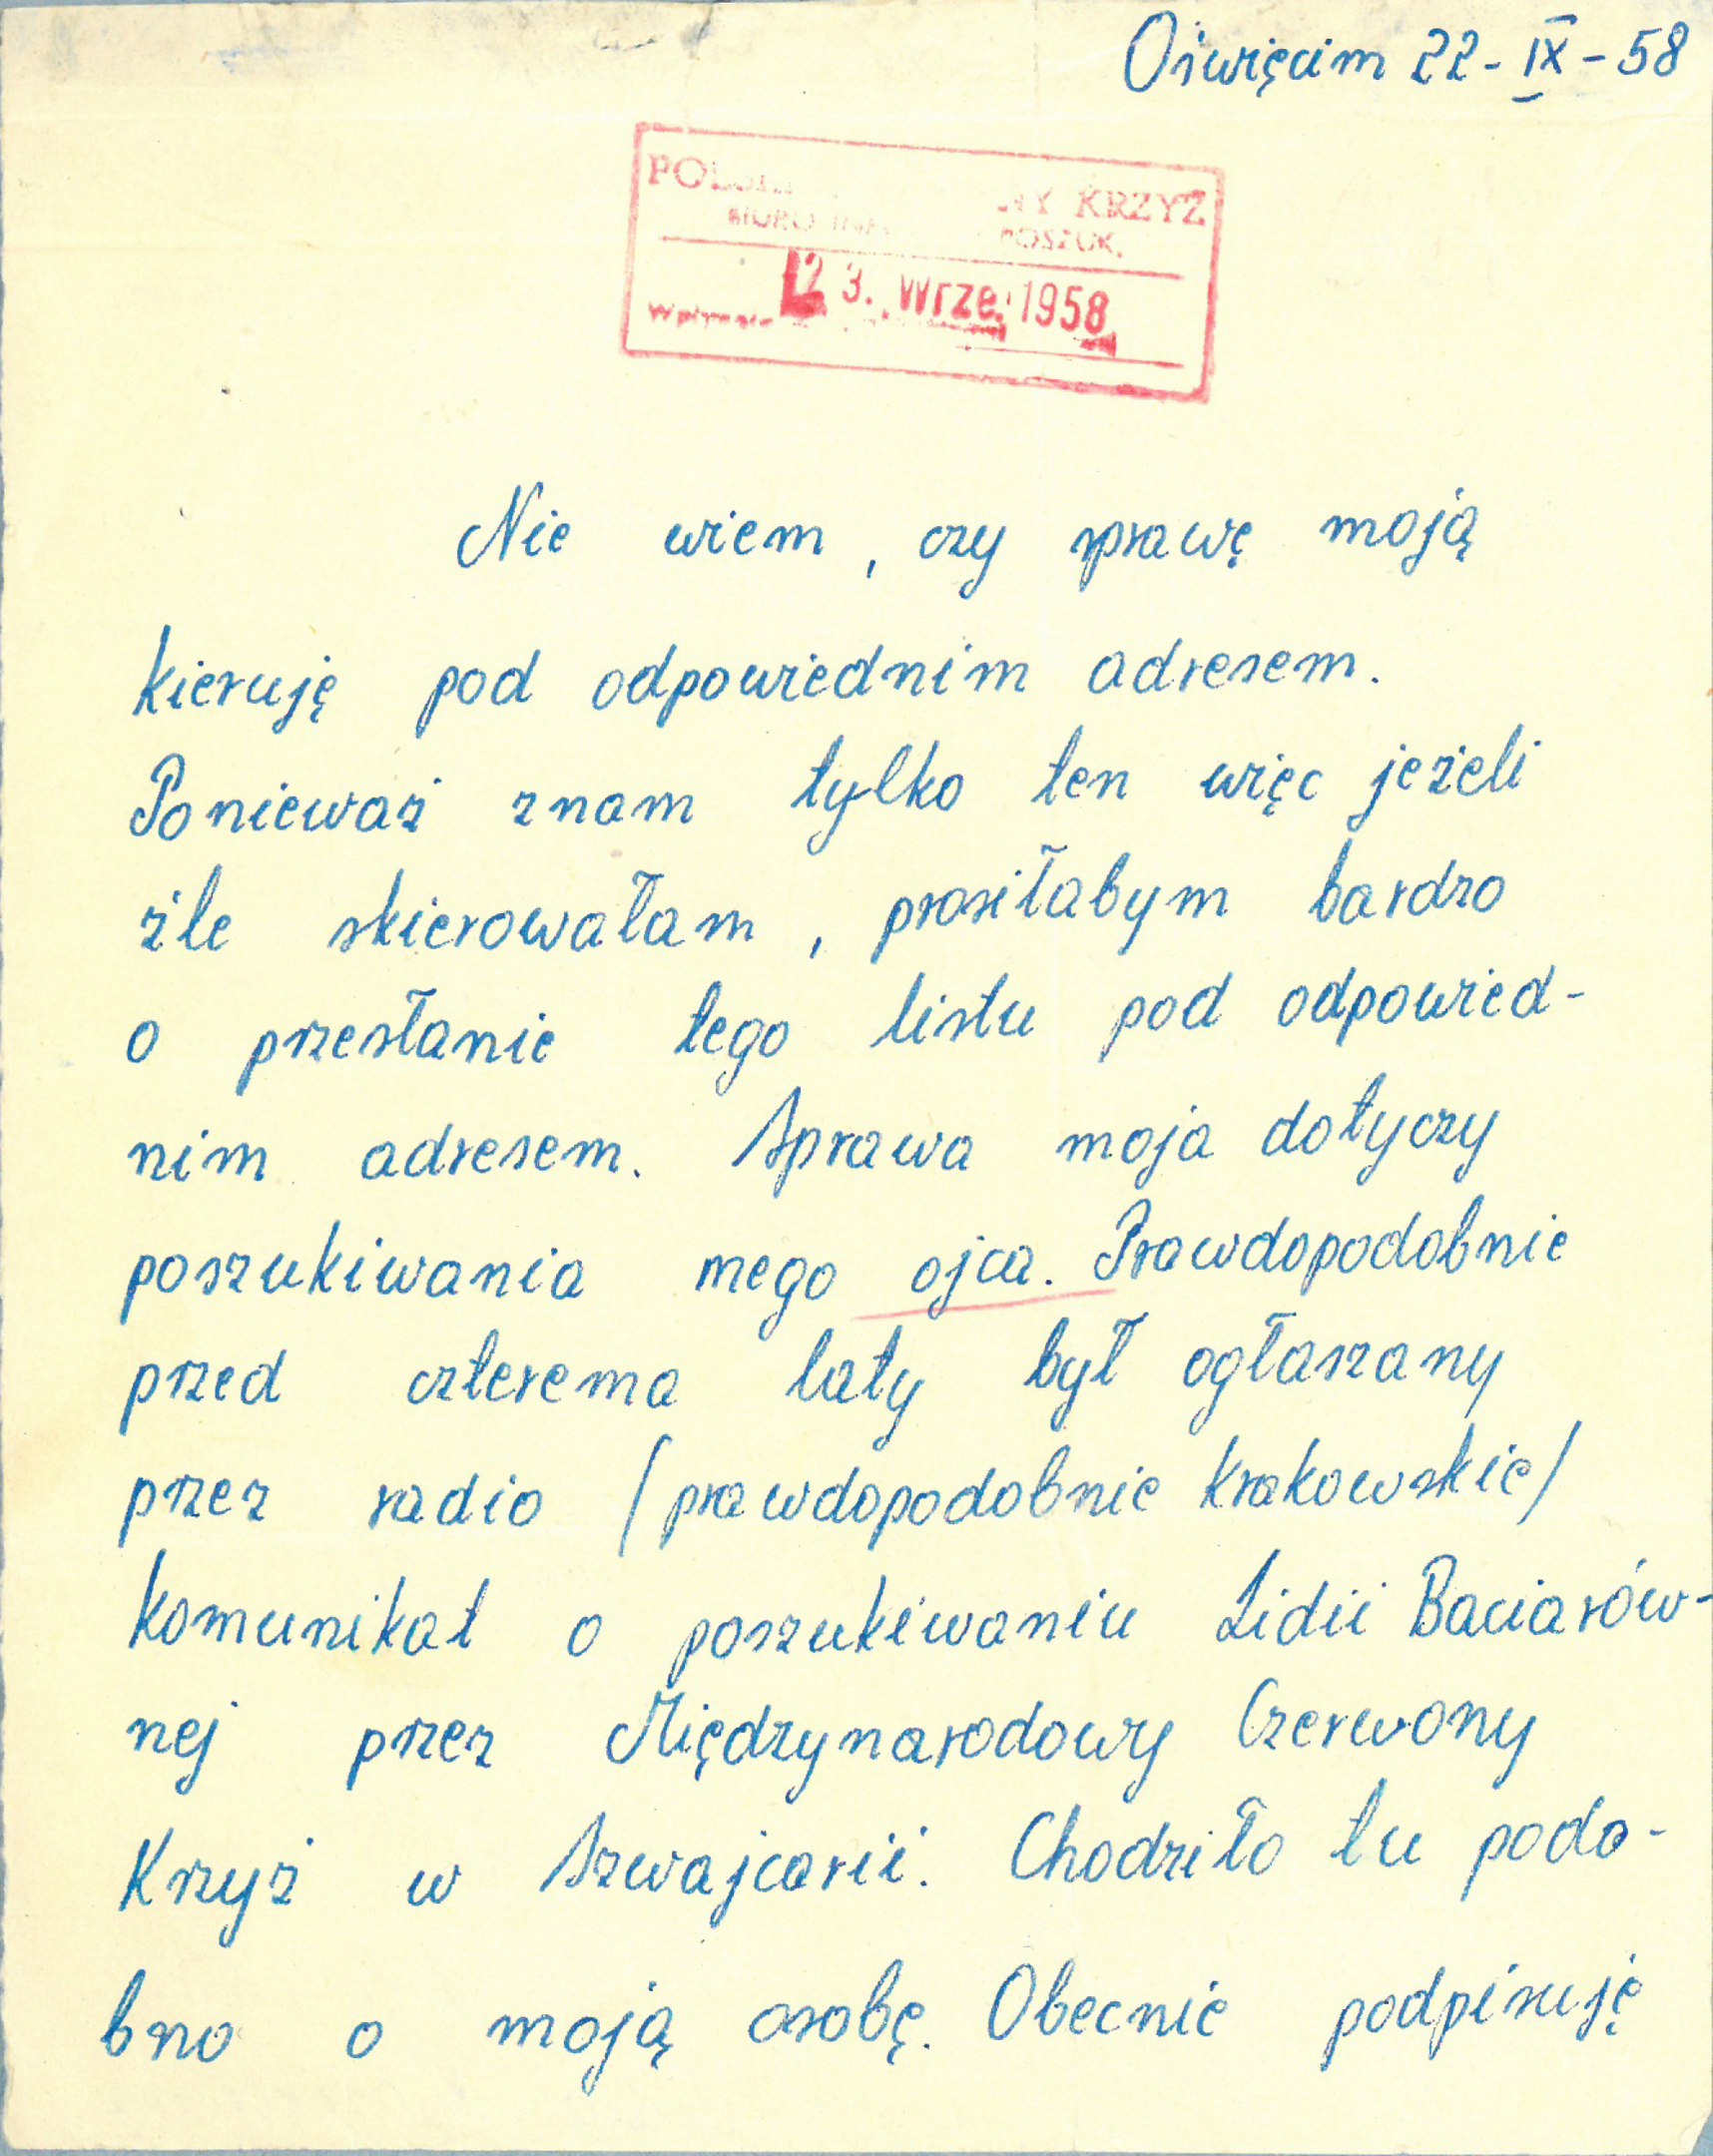 Oświęcim 22-IX-58
KRZYŻ
BIURO
POSZUK.
23. Wrze. 1958
Nie wiem, czy sprawę moją
kieruję pod odpowiednim adresem.
Ponieważ znam tylko ten więc jeżeli
źle skierowałam, prosiłabym bardzo
o przesłanie tego listu pod odpowied-
nim adresem. Sprawa moja dotyczy
poszukiwania mego ojca. Prawdopodobnie
przed czterema laty był ogłaszany
przez radio /prawdopodobnie krakowskie/
komunikat o poszukiwaniu Lidii Baciarów-
nej przez Międzynarodowy Czerwony
Krzyż w Szwajcarii. Chodziło tu podo-
bno o moją osobę. Obecnie podpisuję